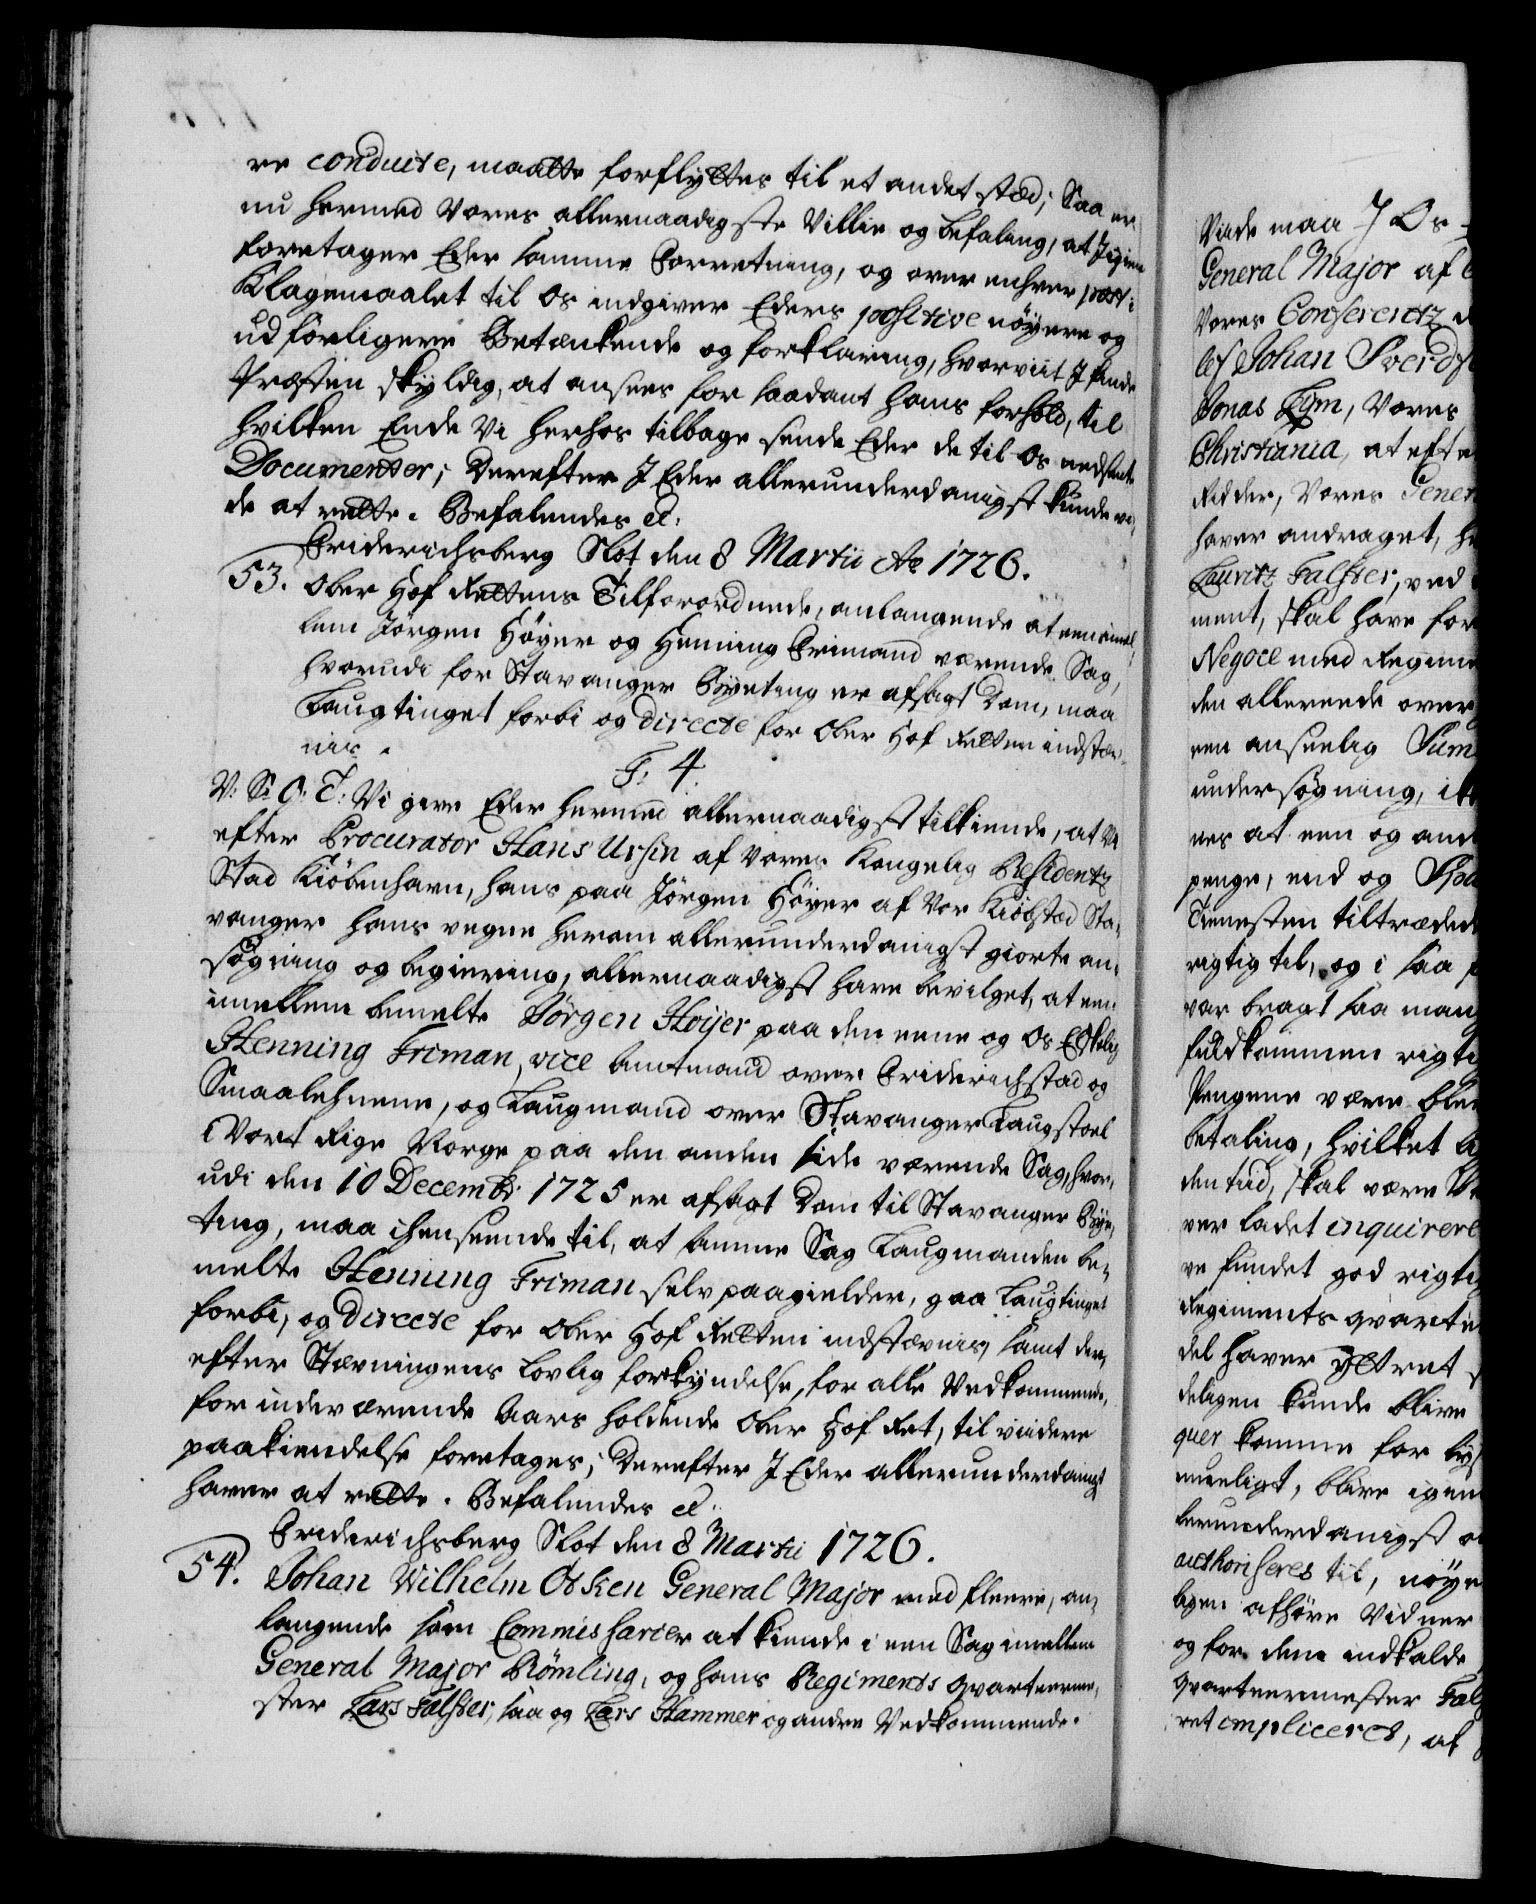 re conduite, maatte forflyttes til et andet stæd; Saa er
nu hermed Vores allernaadigste Villie og befaling, at J igien
foretager Eder samme Forretning, og over enhver post i
Klagemaalet til Os indgiver Eders positive nøyere og
udførligere Betænkende og forklaring, hvorviit J finde
Præsten skyldig, at ansees for saadant hans forhold, til
hvilken Ende Vi herhos tilbage sende Eder de til Os nedsendte
Documenter; Derefter J Eder allerunderdanigst kunde vi-
de at rette. Befalendes etc.
Friderichsberg Slot den 8 Martii Ao 1726.
53. Ober Hof Rettens Tilforordnede, anlangende at een imel-
lem Jørgen Høyer og Henning Frimand værende Sag,
hvorudi for Stavanger Byeting er afsagt Dom, maa
Laugtinget forbi og directe for Ober Hof Retten indstæv-
nis.
F. 4.
V: S: G: T: Vi give Eder hermed allernaadigst tilkiende, at Vi
efter Procurator Hans Ursin af Vores Kongelig Residentz
Stad Kiøbenhavn, hans paa Jørgen Høyer af Vor Kiøbstad Sta-
vanger hans vegne herom allerunderdanigst giorte an-
søgning og begiering, allernaadigst have bevilget, at een
imellem bemelte Jørgen Hoijer paa den eene og Os Elskelig
Henning Friman, vice Amtmand over Friderichstad og
Smaalehnene, og Laugmand over Stavanger Laugstoel
i Vort Rige Norge paa den anden side værende Sag, hvor-
udi den 10 Decembr: 1725 er afsagt Dom til Stavanger Bye-
ting, maa i henseende til, at samme Sag Laugmanden be-
melte Henning Friman selv paagielder, gaa Laugtinget
forbi, og directe for Ober Hof Retten indstævnis, samt der-
efter Stævningens lovlig forkyndelse, for alle Vedkommende,
for indeværende Aars holdende Ober Hof Ret, til viidere
paakiendelse foretages; Derefter J Eder allerunderdanigst
haver at rette. Befalendes etc.
Friderichsberg Slot den 8 Martii 1726.
54. Johan Wilhelm Otken General Major med fleere, an-
langende som Commissarier at kiende i een Sag imellem
General Major Rømling, og hans Regiments Qvarteerme-
ster Lars Falster, saa og Lars Hammer og andre Vedkommende.
Viide maa J Os
General Major af
Vores Conferentz
les Johan Sverdf
Jonas Lym, Vores
Christiania, at efter
Ridder, Vores Gener
haver andraget, h
Lauritz Falster, ved
ment, skal have for
Negoce med Regim
den allerede over
een anseelig Sum
undersøgning, ik
nes at een og and
penge, end og
Tienesten tiltræde
rigtig til, og i saa
var bragt saa mang
fuldkommen rigti
Pengene være ble
betaling, hvilket
den tiid, skal være
ver ladet inquirere
ve fundet god rigti
Regiments qvarte
del haver yttret
deligen kunde blive
qver komme for ly
mueligt, blive igen
lerunderdanigst
authoriseres til, nøye
ligen afhøre Vidner
og for dem indkalde
Qvarteermester Fal
ret impliceret, af